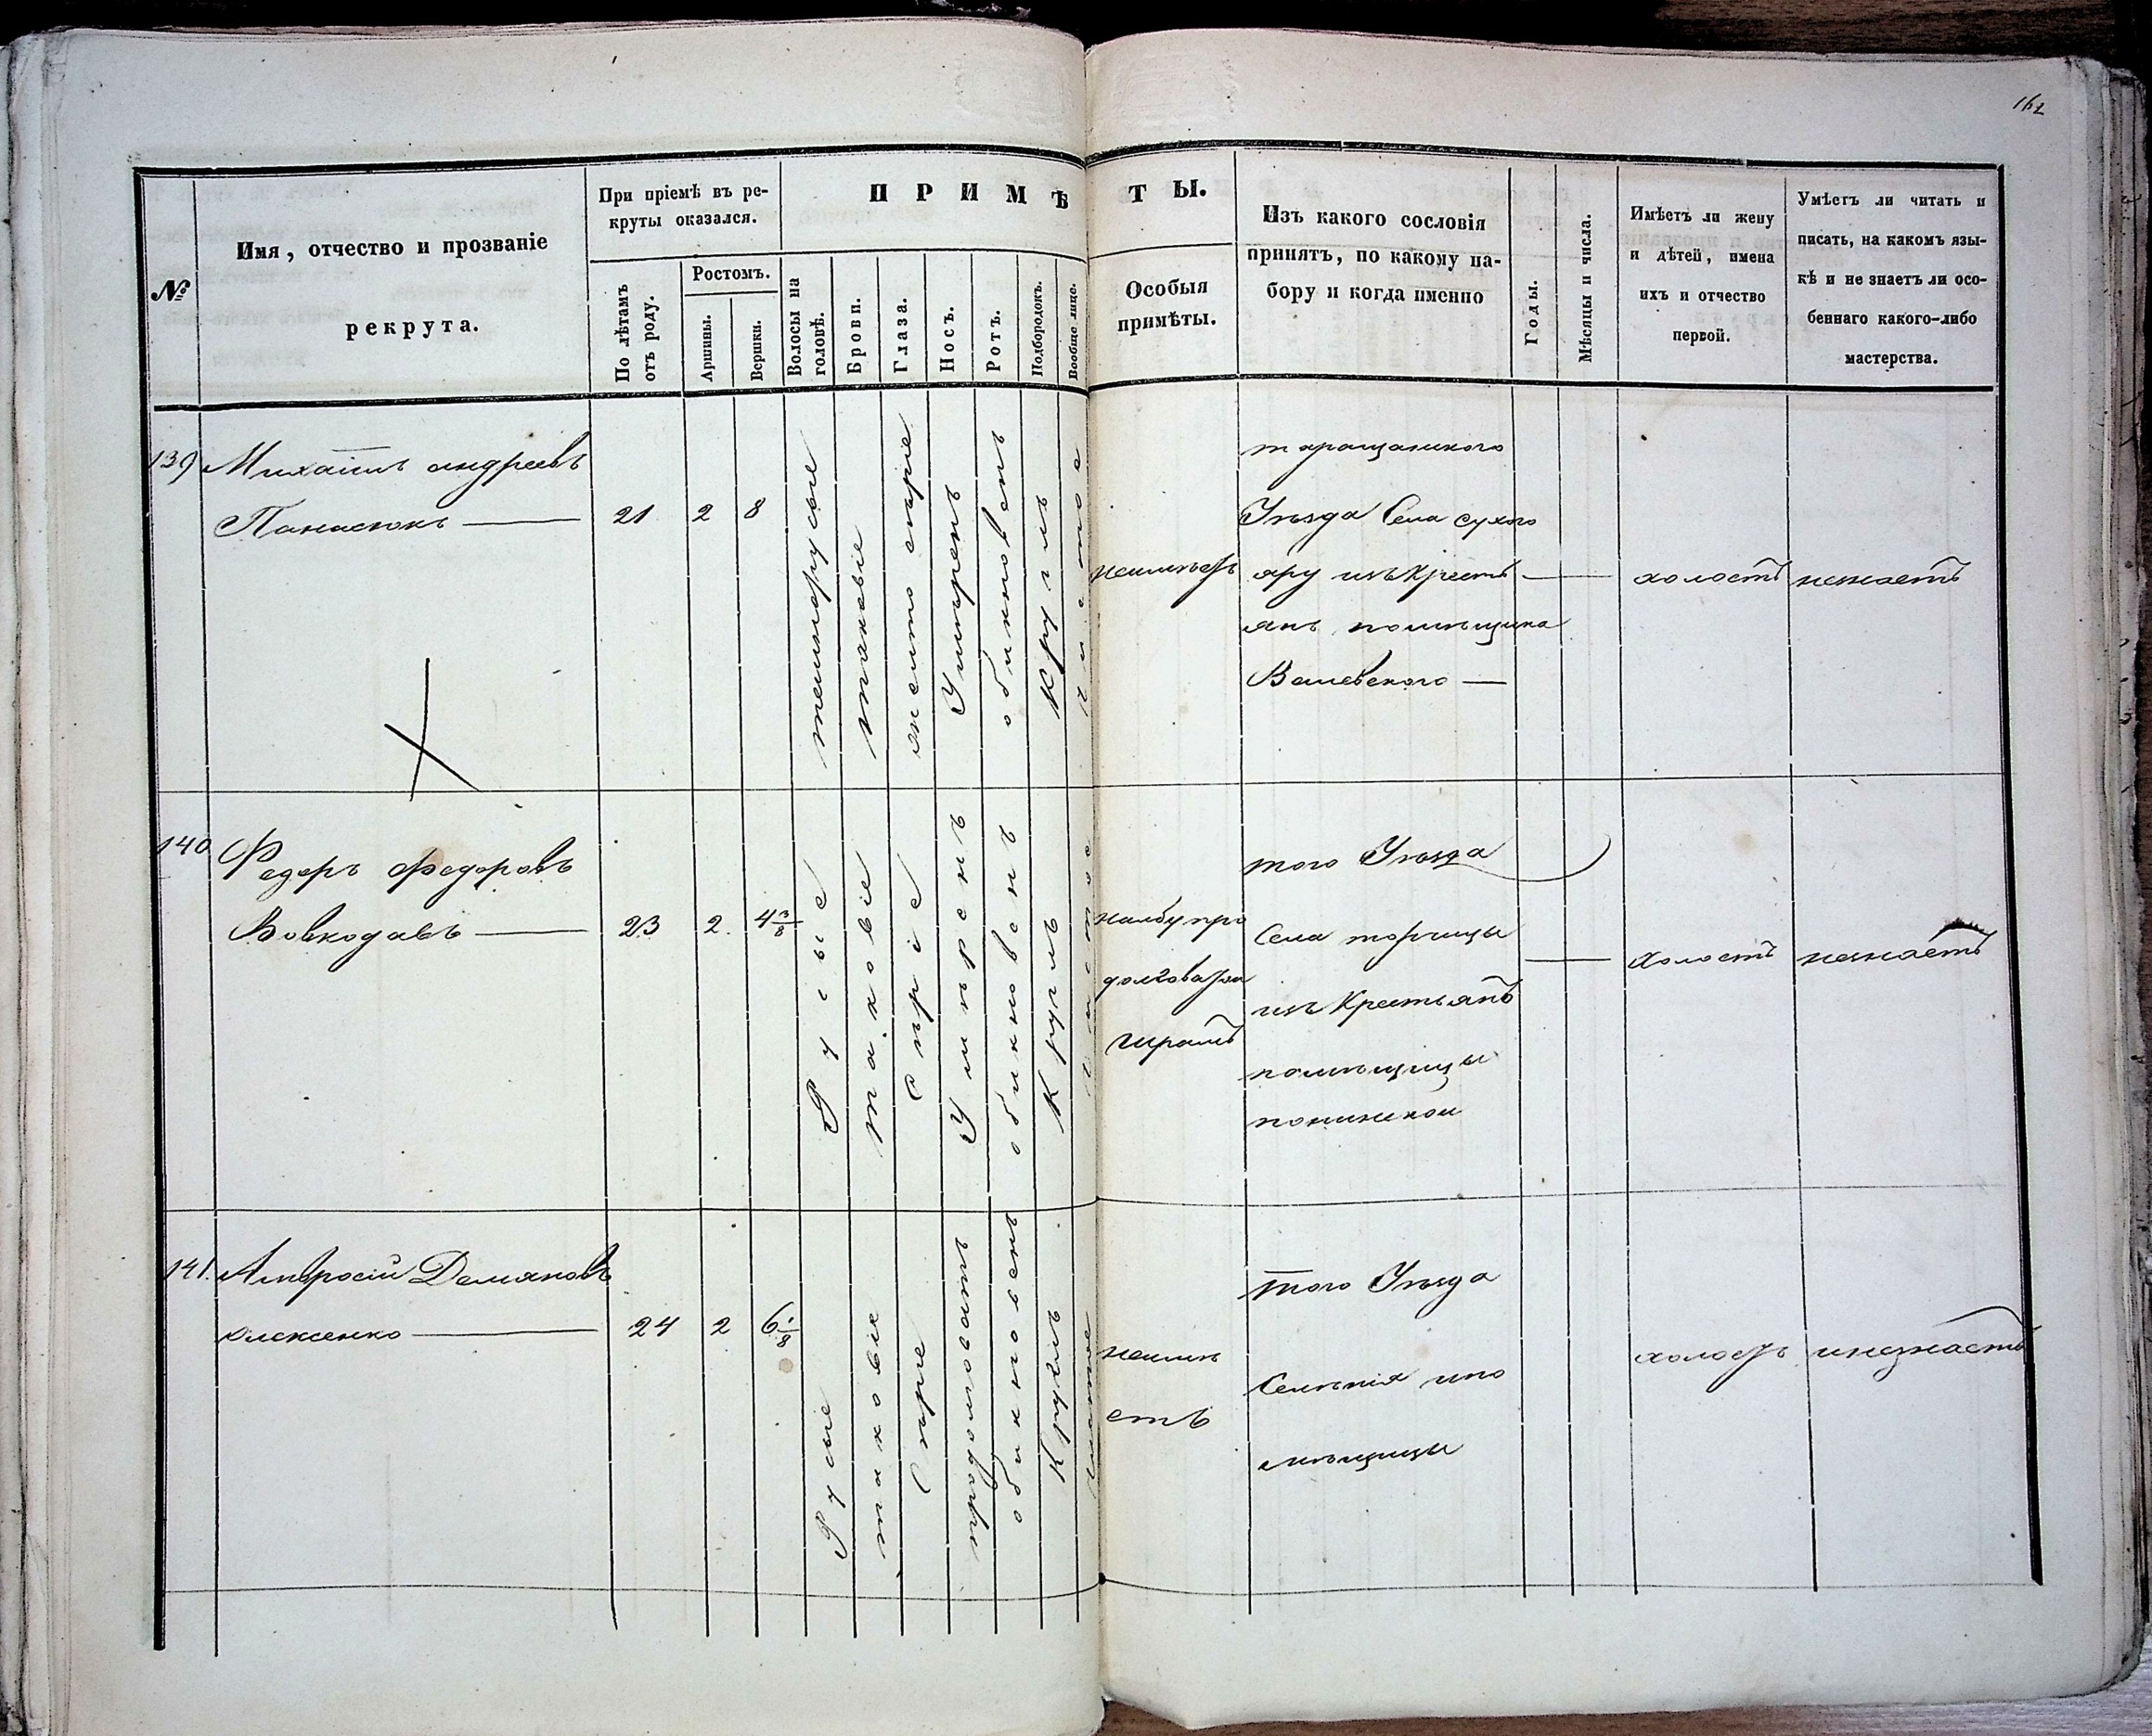 162
№
Имя, отчество и прозваніе
рекрута.
При пріемѣ въ ре-
круты оказался.
По лѣтамъ
отъ роду.
Ростомъ.
Аршины.
Вершки.
ПРИМѢТЫ.
Волосы на
головѣ.
Брови.
Глаза.
Носъ.
Ротъ.
Подбородокъ.
Вообще лице.
Особыя
примѣты.
Изъ какого сословія
принятъ, по какому на-
бору и когда именно
Годы.
Мѣсяцы и числа.
Имѣетъ ли жену
и дѣтей, имена
ихъ и отчество
первой.
Умѣетъ ли читать и
писать, на какомъ язы-
кѣ и не знаетъ ли осо-
беннаго какого-либо
мастерства.
139
Михаилъ андреевъ
Панасюкъ
21
2
8
темнорусые
таковіе
желто сѣрые
Умѣренъ
обикновенъ
Круглъ
чистое
неимѣетъ
таращанского
Уѣзда Села сухого
яру изъ Кресть
янъ помѣщика
холостъ
незнаетъ
140
Федоръ Федоровъ
Вовкодавъ
23
2
4 3/8
Русые
таковіе
Сѣріе
Умѣренъ
обикновенъ
Круглъ
чистое
налбу про
долговатои
шрамъ
того Уѣзда
Села торчицы
изъ Крестьянъ
помѣщицы
холостъ
незнаетъ
141.
Амвросій Демяновъ
олексенко
24
2
6 1/8
Русые
таковіе
Сѣрые
продолговатъ
обикновенъ
Круглъ
чистое
неимѣ
етъ
того Уѣзда
Селенія ипо
мѣщицы
холостъ
инезнаетъ